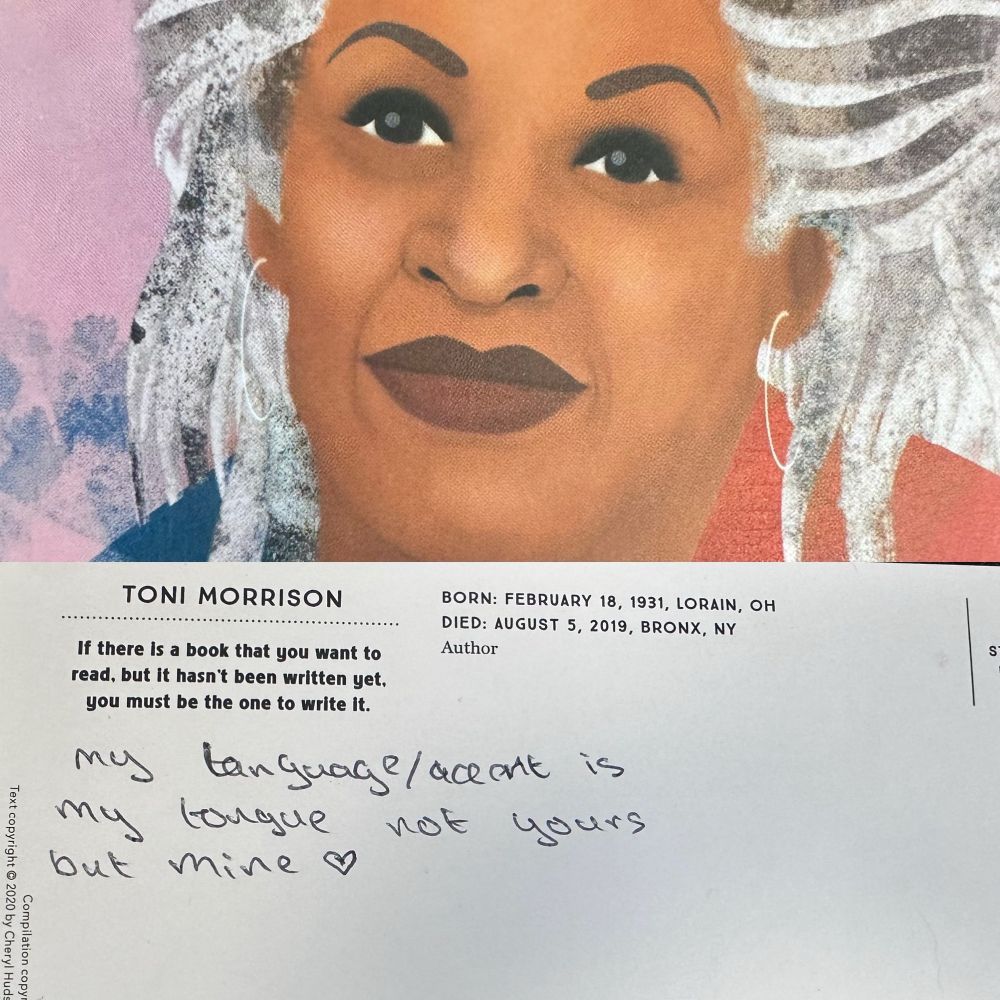 TONI MORRISON
If there is a book that you want to
read, but it hasn't been written yet,
you must be the one to write it.
BORN: FEBRUARY 18, 1931, LORAIN, OH
DIED: AUGUST 5, 2019, BRONX, NY
Author
my language/accent is
my tongue not yours
but mine ♡
Text copyright © 2020 by Cheryl
Compilation